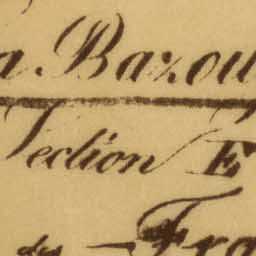 a. Bazou
Section E
de — Fra